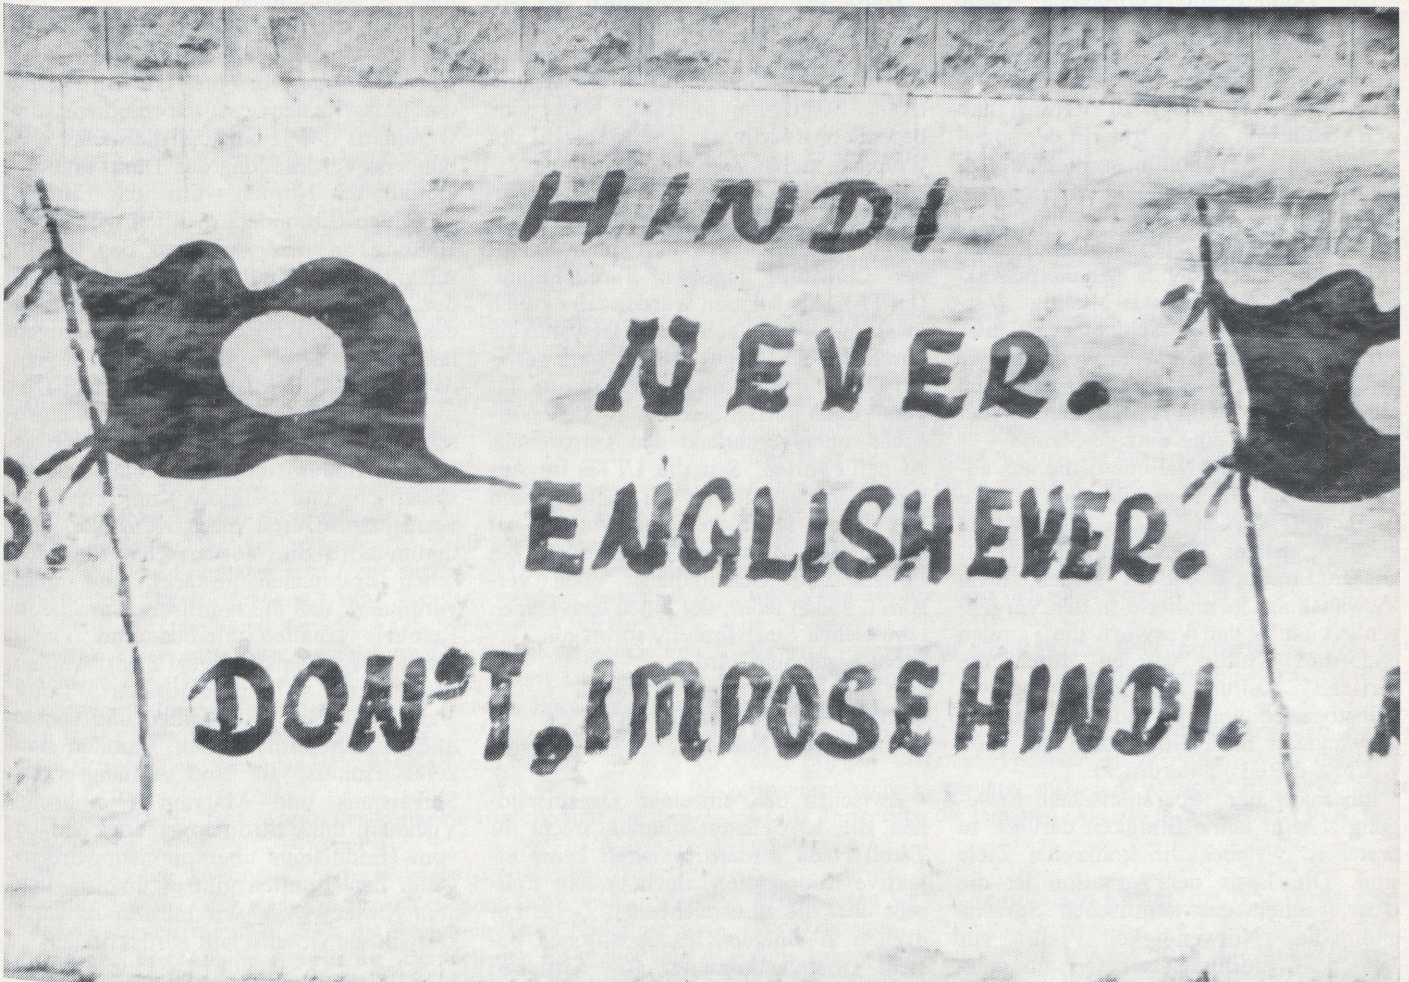 HINDI
NEVER.
ENGLISH EVER.
DON'T, IMPOSE HINDI.